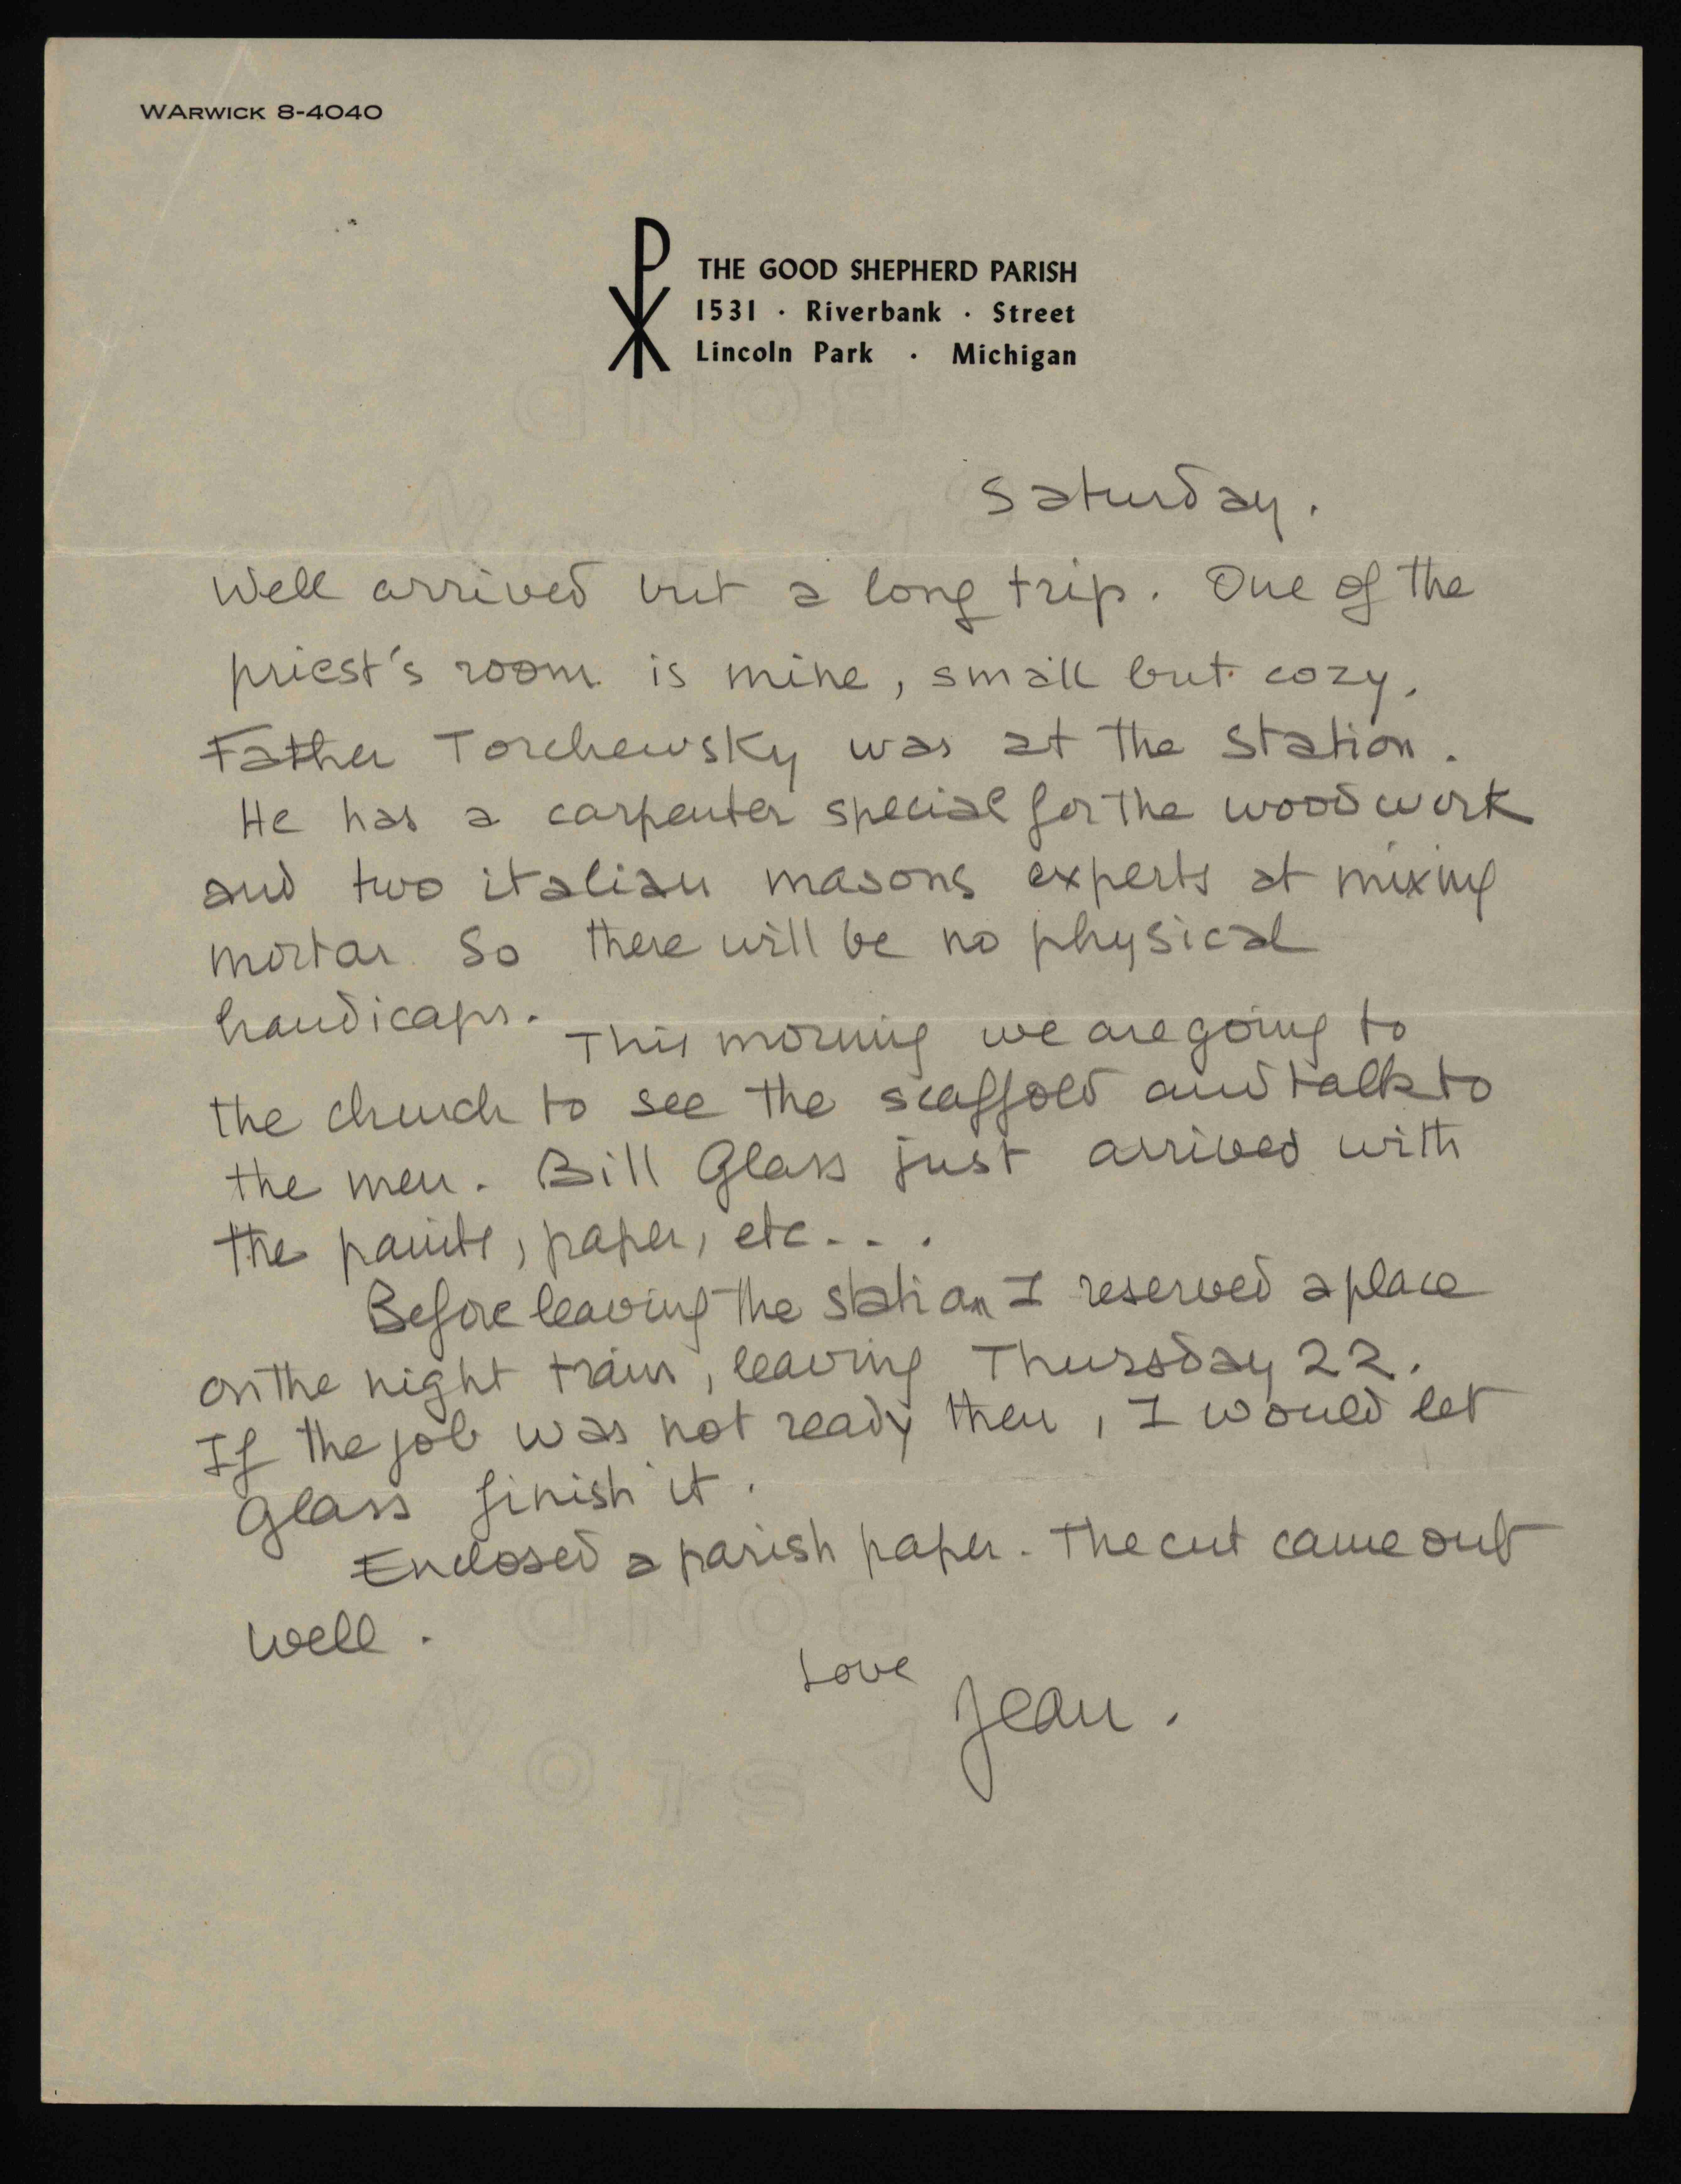 WARWICK 8-4040
THE GOOD SHEPHERD PARISH
1531 · Riverbank · Street
Lincoln Park · Michigan
Saturday.
Well arrived but a long trip. One of the
priest's room is mine, small but cozy.
Father Torchewsky was at the station.
He has a carpenter special for the woodwork
and two italian masons experts at mixing
mortar. So there will be no physical
handicaps. This morning we are going to
the church to see the scaffold and talk to
the men. Bill Glass just arrived with
the paints, paper, etc....
Before leaving the station I reserved a place
on the night train, leaving Thursday 22.
If the job was not ready then, I would let
Glass finish it.
Enclosed a parish paper. The cut came out
well.
Love
Jean.
BOND